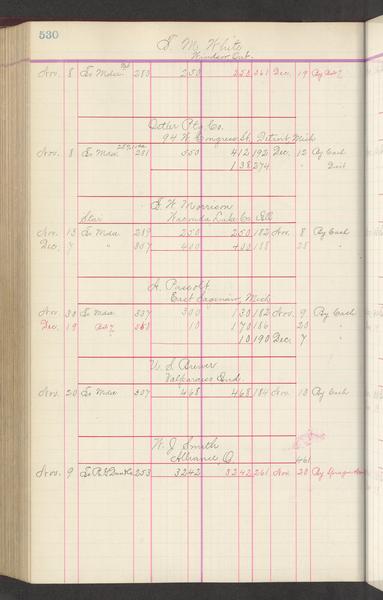 530
S. M. White
Windsor, Ont.
Nov. 8 To Mdse 283 250 250 261 Dec. 19 By
Ostler Ptg. Co.
94 W. Congress St, Detroit Mich
Nov. 8 To Mdse. 281 550 412 192 Dec. 12 By Cash
138 274 "
E. W. Morrison
Waconda Lake Co. Ill
Nov. 13 To Mdse 289 250 250 182 Nov. 8 By Cash
Dec. 7 " 307 400 400 188 28 "
East Saginaw, Mich
Nov. 30 To Mdse 337 300 130 182 Nov. 9 By Cash
Dec. 19 10 170 186 20 "
10 190 Dec. 7 "
W. S. Brewer
Valparaiso Ind.
Nov. 20 To Mdse 307 468 468 184 Nov. 13 By Cash
W. J. Smith
Alliance, O.
461
Nov. 9 253 3242 3242 261 Nov. 28 By